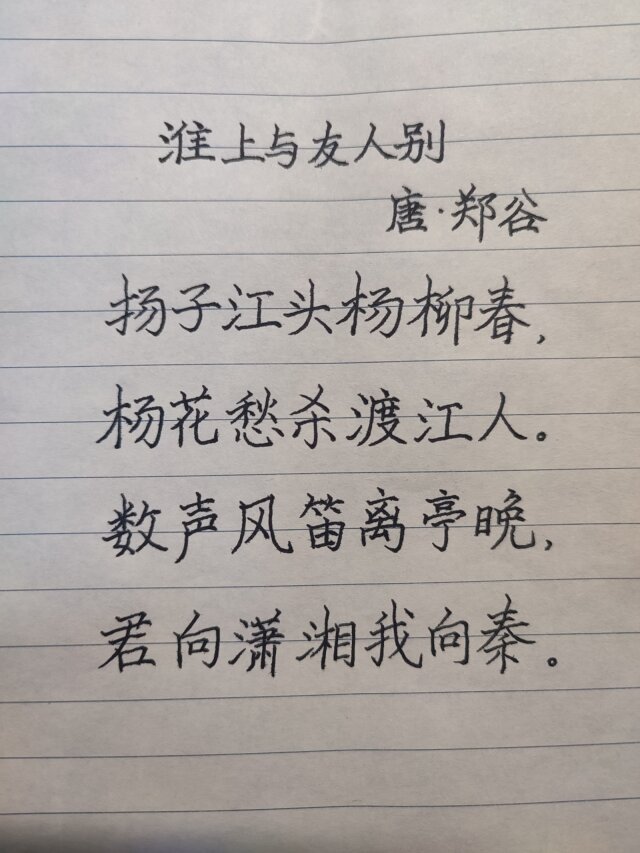 淮上与友人别
唐·郑谷
扬子江头杨柳春,
杨花愁杀渡江人。
数声风笛离亭晚,
君向潇湘我向秦。